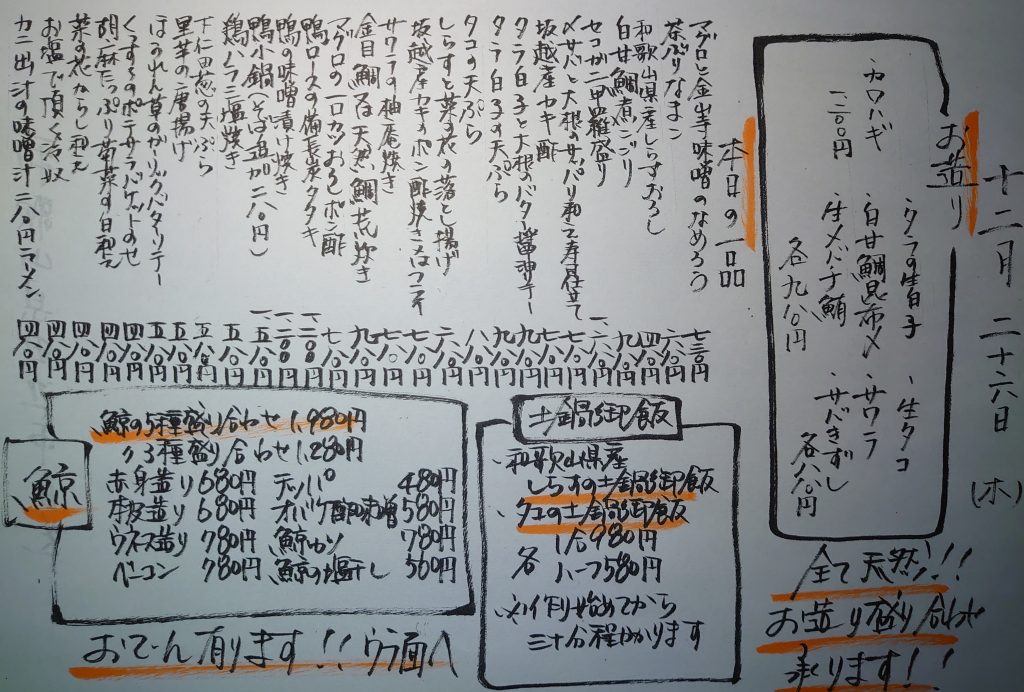 十二月二十六日(木)
お造り
・タラの生白子 ・生タコ
・白甘鯛昆布〆 ・サワラ
・生メバチ鮪 ・サバきずし
各九八〇円 各八八〇円
・カワハギ
一二〇〇円
全て天然!!
お造り盛り合わせ
承ります!!
本日の一品
マグロと金山寺味噌のなめろう 七二〇円
茶ぶりなまこ 六八〇円
和歌山県産しらすおろし 四八〇円
白甘鯛煮こごり
セコガニ甲羅盛り
〆サバと大根のサッパリ和え寿月仕立て
坂越産カキ酢
タラ白子と大根のバター醤油ソテー
タラ白子の天ぷら
タコの天ぷら
しらすと菜の花の落とし揚げ
坂越産カキのポン酢焼き又はフライ
サワラの柚庵焼き
金目鯛又は天然鯛荒炊き
マグロの一口カツおろしポン酢
鴨ロースの備長炭タタキ
鴨の味噌漬け焼き
鴨小鍋(そば追加二八〇円)
鶏ハラミ塩焼き 五八〇円
下仁田葱の天ぷら 五八〇円
里芋の二層揚げ 五八〇円
ほうれん草のガーリックバターソテー 五八〇円
くずまのポテサラバケットのせ 四八〇円
胡麻たっぷり菊菜の白和え 四八〇円
菜の花からし和え 四八〇円
お塩で頂く冷奴 四八〇円
カニ出汁の味噌汁 二八〇円ラーメン 四八〇円
土鍋御飯
・和歌山県産
しらすの土鍋御飯
・クエの土鍋御飯
各 1合980円
ハーフ580円
※作り始めてから
三十分程かかります
鯨
鯨の5種盛り合わせ1,980円
〃3種盛り合わせ1,280円
赤身造り680円 天ぷら 480円
本皮造り680円 オバケ酢味噌580円
ウネス造り780円 鯨カツ 780円
ベーコン 780円 鯨の塩干し 560円
おでん有ります!!ウラ面へ